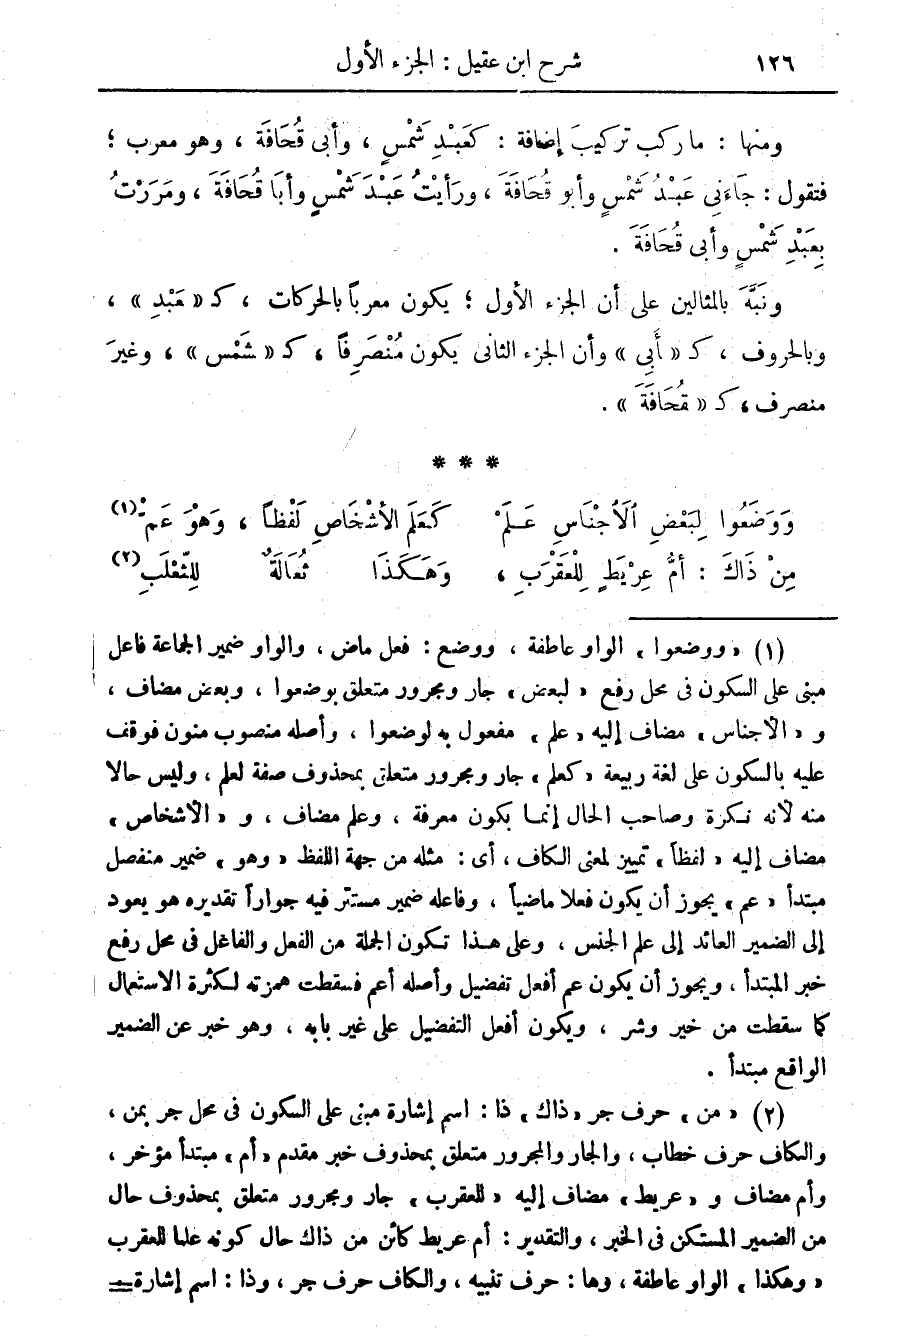 ١٢٦ شرح ابن عقيل : الجزء الأول
ومنها : ما ركب تركيبَ إضافة : كَعَبْدِ شَمْسٍ ، وأبى قُحَافَةَ ، وهو معرب ؛
فتقول : جَاءَنِي عَبْدُ شَمْسٍ وأبو قُحَافَةَ ، ورَأيْتُ عَبْدَ شَمْسٍ وأبَا قُحَافَةَ ، ومَرَرْتُ
بِعَبْدِ شَمْسٍ وأبى قُحَافَةَ .
ونَبَّهَ بالمثالين على أن الجزء الأول ؛ يكون معرباً بالحركات ، كـ « عَبْدِ » ،
وبالحروف ، كـ « أَبِي » وأن الجزء الثانى يكون مُنْصَرِفًا ، كـ « شَمْس » ، وغيرَ
منصرف ، كـ « قُحَافَةَ » .
* * *
وَوَضَعُوا لِبَعْضِ الْأَجْنَاسِ عَلَمْ كَعَلَمِ الأشْخَاصِ لَفْظاً ، وَهْوَ عَمّْ (١)
مِنْ ذَاكَ : أمُّ عِرْيَطٍ لِلْعَقْرَبِ ، وَهَكَذَا ثُعَالَةٌ لِلثَّعْلَبِ (٢)
(١) « ووضعوا » الواو عاطفة ، ووضع : فعل ماض ، والواو ضمير الجماعة فاعل
مبنى على السكون فى محل رفع « لبعض » جار ومجرور متعلق بوضعوا ، وبعض مضاف ،
و « الأجناس » مضاف إليه « علم » مفعول به لوضعوا ، وأصله منصوب منون فوقف
عليه بالسكون على لغة ربيعة « كعلم » جار ومجرور متعلق بمحذوف صفة لعلم ، وليس حالا
منه لأنه نكرة وصاحب الحال إنما يكون معرفة ، وعلم مضاف ، و « الأشخاص »
مضاف إليه « لفظاً » تمييز لمعنى الكاف ، أى : مثله من جهة اللفظ « وهو » ضمير منفصل
مبتدأ « عم » يجوز أن يكون فعلا ماضياً ، وفاعله ضمير مستتر فيه جوازاً تقديره هو يعود
إلى الضمير العائد إلى علم الجنس ، وعلى هذا تكون الجملة من الفعل والفاعل فى محل رفع
خبر المبتدأ ، ويجوز أن يكون عم أفعل تفضيل وأصله أعم فسقطت همزته لكثرة الاستعمال
كما سقطت من خير وشر ، ويكون أفعل التفضيل على غير بابه ، وهو خبر عن الضمير
الواقع مبتدأ .
(٢) « من » حرف جر « ذاك » ذا : اسم إشارة مبنى على السكون فى محل جر بمن ،
والكاف حرف خطاب ، والجار والمجرور متعلق بمحذوف خبر مقدم « أم » مبتدأ مؤخر ،
وأم مضاف و « عريط » مضاف إليه « للعقرب » جار ومجرور متعلق بمحذوف حال
من الضمير المستكن فى الخبر ، والتقدير : أم عريط كائن من ذاك حال كونه علما للعقرب
« وهكذا » الواو عاطفة ، وها : حرف تنبيه ، والكاف حرف جر ، وذا : اسم إشارة =